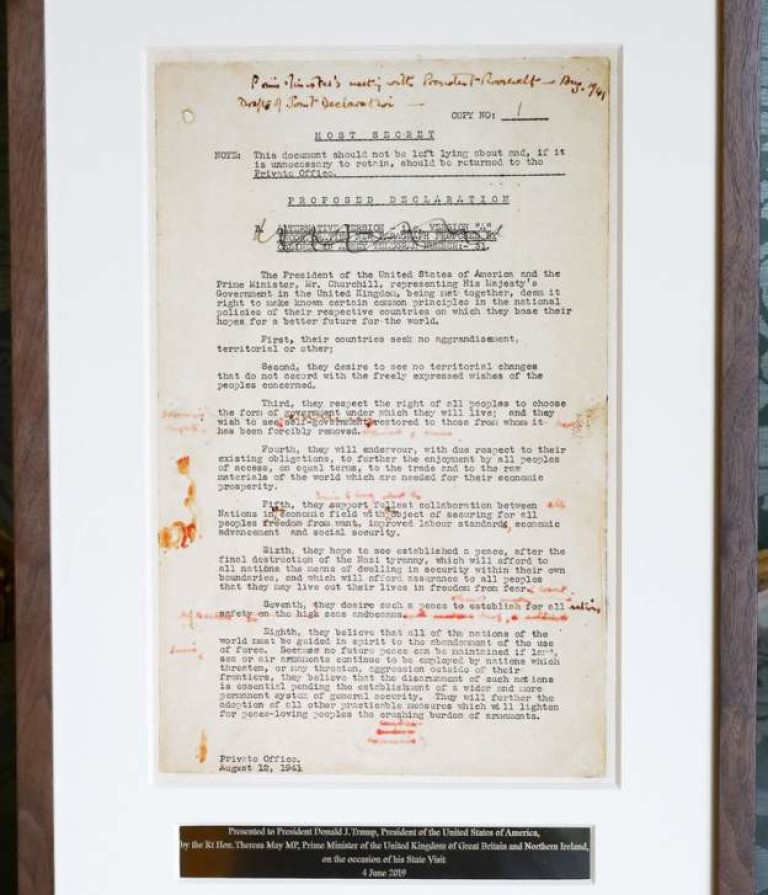 Prime Minister's meeting with President Roosevelt - Aug. 1941
Draft of Joint Declaration -
COPY NO: 1
MOST SECRET
NOTE: This document should not be left lying about and, if it
is unnecessary to retain, should be returned to the
Private Office.
PROPOSED DECLARATION
The President of the United States of America and the
Prime Minister, Mr. Churchill, representing His Majesty's
Government in the United Kingdom, being met together, deem it
right to make known certain common principles in the national
policies of their respective countries on which they base their
hopes for a better future for the world.
First, their countries seek no aggrandisement,
territorial or other;
Second, they desire to see no territorial changes
that do not accord with the freely expressed wishes of the
peoples concerned.
Third, they respect the right of all peoples to choose
the form of government under which they will live; and they
wish to see self-government restored to those from whom it
has been forcibly removed.
Fourth, they will endeavour, with due respect to their
existing obligations, to further the enjoyment by all peoples
of access, on equal terms, to the trade and to the raw
materials of the world which are needed for their economic
prosperity.
Fifth, they support fullest collaboration between
Nations in economic field with object of securing for all
peoples freedom from want, improved labour standards, economic
advancement and social security.
Sixth, they hope to see established a peace, after the
final destruction of the Nazi tyranny, which will afford to
all nations the means of dwelling in security within their own
boundaries, and which will afford assurance to all peoples
that they may live out their lives in freedom from fear
Seventh, they desire such a peace to establish for all
safety on the high seas and oceans.
Eighth, they believe that all of the nations of the
world must be guided in spirit to the abandonment of the use
of force. Because no future peace can be maintained if land,
sea or air armaments continue to be employed by nations which
threaten, or may threaten, aggression outside of their
frontiers, they believe that the disarmament of such nations
is essential pending the establishment of a wider and more
permanent system of general security. They will further the
adoption of all other practicable measures which will lighten
for peace-loving peoples the crushing burden of armaments.
Private Office.
August 12, 1941
Presented to President Donald J. Trump, President of the United States of America,
by the Rt Hon. Theresa May MP, Prime Minister of the United Kingdom of Great Britain and Northern Ireland,
on the occasion of his State Visit
4 June 2019